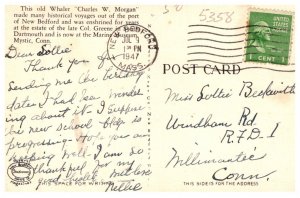 This old Whaler "Charles W. Morgan"
made many historical voyages out of the port
of New Bedford and was enshrined for years
at the estate of the late Col. Greene
Dartmouth and is now at the Marine Museum
Mystic, Conn.
Dear Sollie
Thank you for
sending me the
dates I had been wonder
ing about it - I suppose
the new school bldg is
progressing - Hope you are
keeping well. I am so
thankful for my
good health. With love
Nellie
THIS SPACE FOR WRITING
NEW BEDFORD
JUL 9
1 PM
1947
MASS.
5358
1 CENT 1
POST CARD
Miss Sollie Beckwith
Windham Rd
R.F.D. 1
Willimantic
Conn.
THIS SIDE IS FOR THE ADDRESS